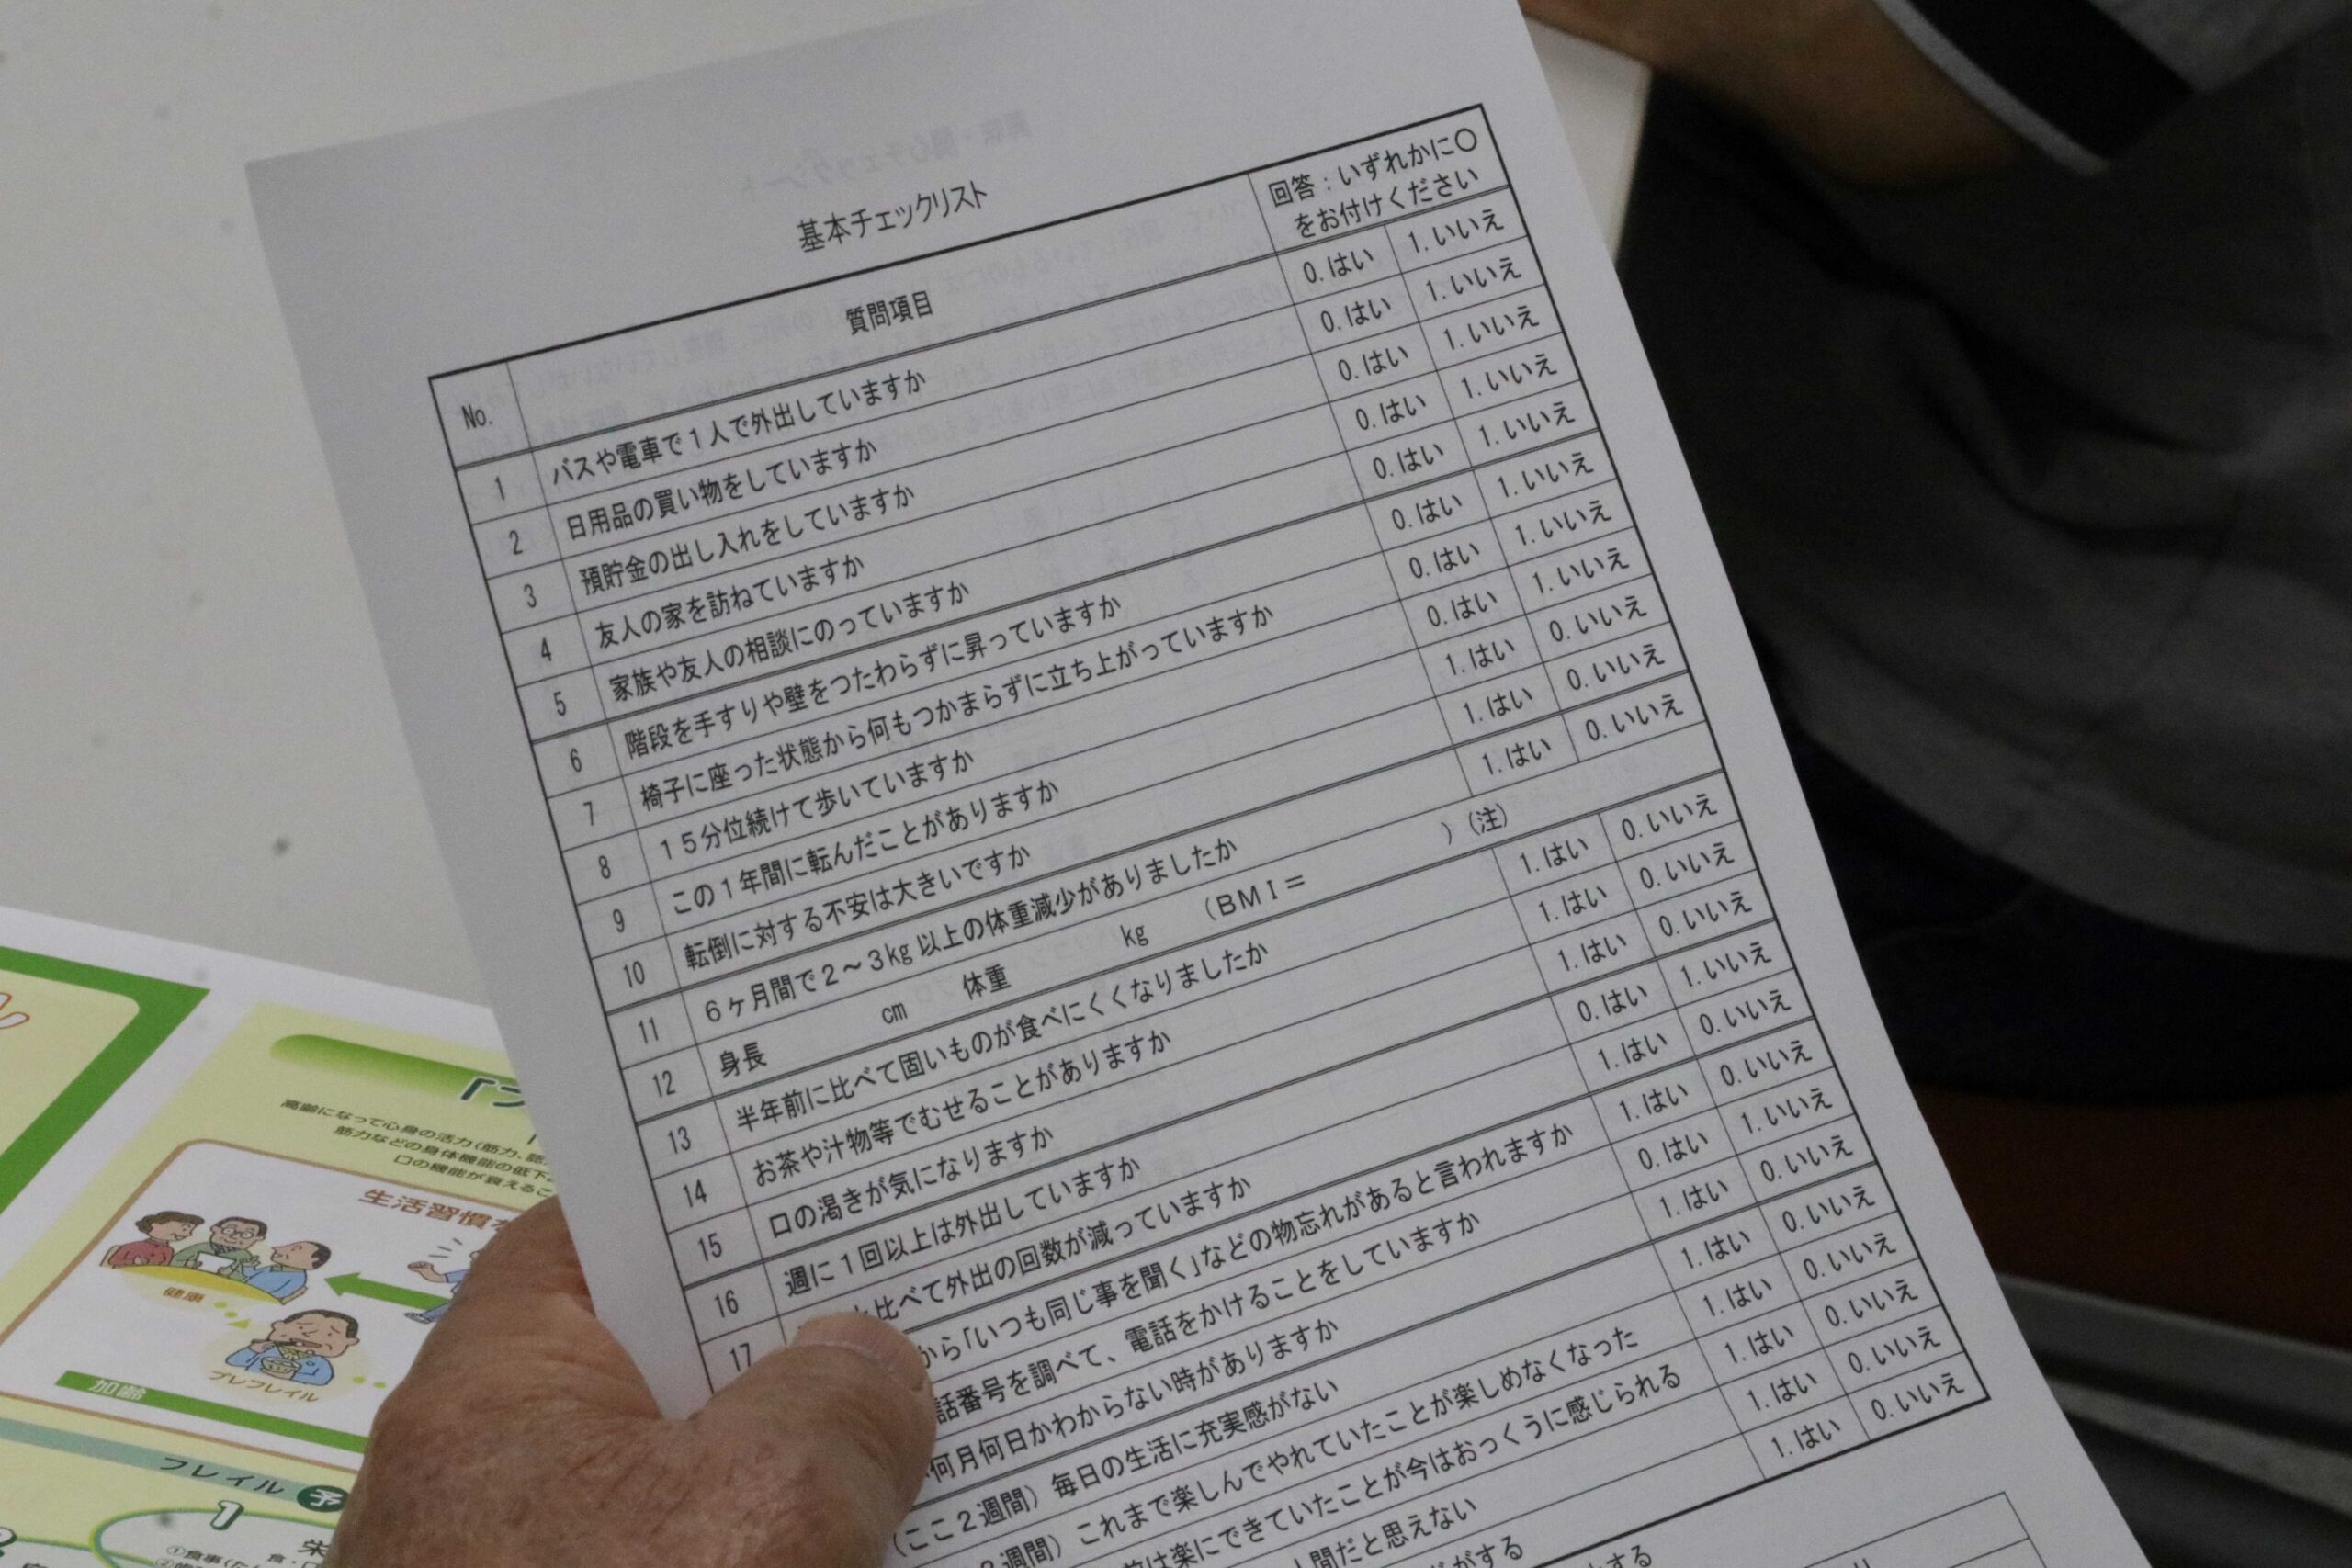 基本チェックリスト
No. 質問項目 回答：いずれかに〇
をお付けください
1 バスや電車で１人で外出していますか 0.はい 1.いいえ
2 日用品の買い物をしていますか 0.はい 1.いいえ
3 預貯金の出し入れをしていますか 0.はい 1.いいえ
4 友人の家を訪ねていますか 0.はい 1.いいえ
5 家族や友人の相談にのっていますか 0.はい 1.いいえ
6 階段を手すりや壁をつたわらずに昇っていますか 0.はい 1.いいえ
7 椅子に座った状態から何もつかまらずに立ち上がっていますか 0.はい 1.いいえ
8 １５分位続けて歩いていますか 0.はい 1.いいえ
9 この１年間に転んだことがありますか 1.はい 0.いいえ
10 転倒に対する不安は大きいですか 1.はい 0.いいえ
11 ６ヶ月間で２～３kg以上の体重減少がありましたか 1.はい 0.いいえ
12 身長 cm 体重 kg （ＢＭＩ＝ ）（注）
13 半年前に比べて固いものが食べにくくなりましたか 1.はい 0.いいえ
14 お茶や汁物等でむせることがありますか 1.はい 0.いいえ
15 口の渇きが気になりますか 1.はい 0.いいえ
16 週に１回以上は外出していますか 0.はい 1.いいえ
17 と比べて外出の回数が減っていますか 1.はい 0.いいえ
から「いつも同じ事を聞く」などの物忘れがあると言われますか 1.はい 0.いいえ
話番号を調べて、電話をかけることをしていますか 0.はい 1.いいえ
何月何日かわからない時がありますか 1.はい 0.いいえ
（ここ２週間）毎日の生活に充実感がない 1.はい 0.いいえ
２週間）これまで楽しんでやれていたことが楽しめなくなった 1.はい 0.いいえ
前は楽にできていたことが今はおっくうに感じられる 1.はい 0.いいえ
人間だと思えない 1.はい 0.いいえ
がする 1.はい 0.いいえ
する
高齢になって心身の活力（筋力、認
筋力などの身体機能の低下
口の機能が衰えるこ
生活習慣
健康
プレフレイル
加齢
フレイル 予
1